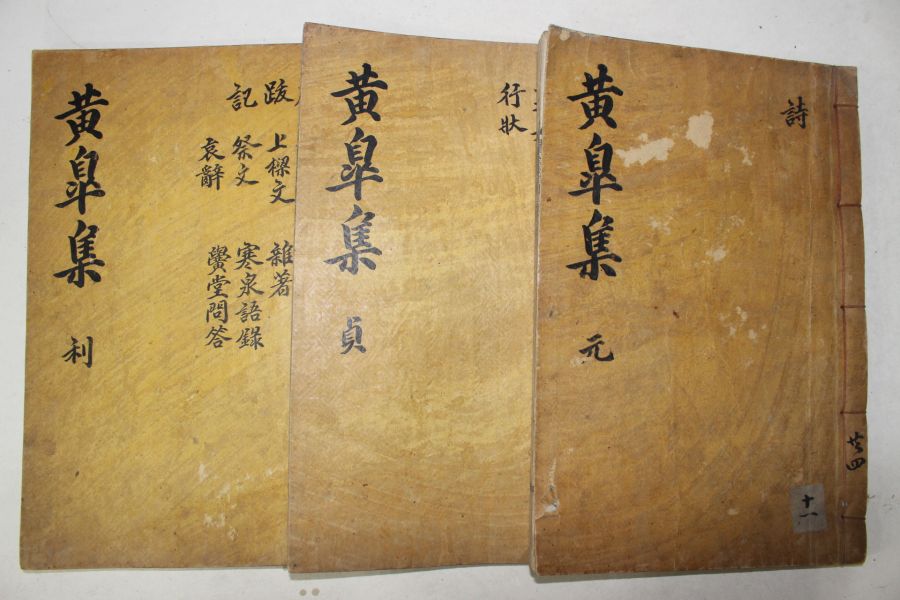 黄皐集
利
跋
記
上樑文
祭文
哀辭
雜著
寒泉語錄
黌堂問答
黄皐集
貞
行狀
黄皐集
元
詩
共四
十一